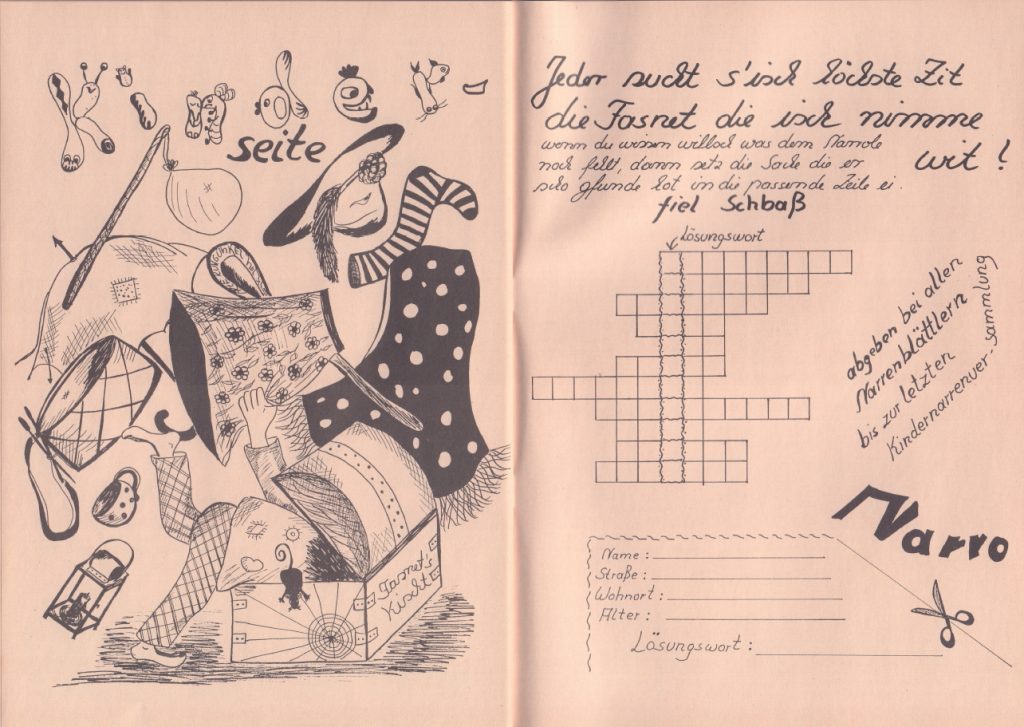 Kinder-
seite
Fasnet's
Kischt
Jeder sucht s'isch höchste Zit
die Fasnet die isch nimme
wit!
wenn du wissen willsch was dem Narrole
noch fehlt, dann setz die Sache die er
scho gfunde hot in die passende Zeile ei.
fiel Schbaß
Lösungswort
abgeben bei allen
Narrenblättlern
bis zur letzten
Kindernarrenver-sammlung
Narro
Name:
Straße:
Wohnort:
Alter:
Lösungswort: